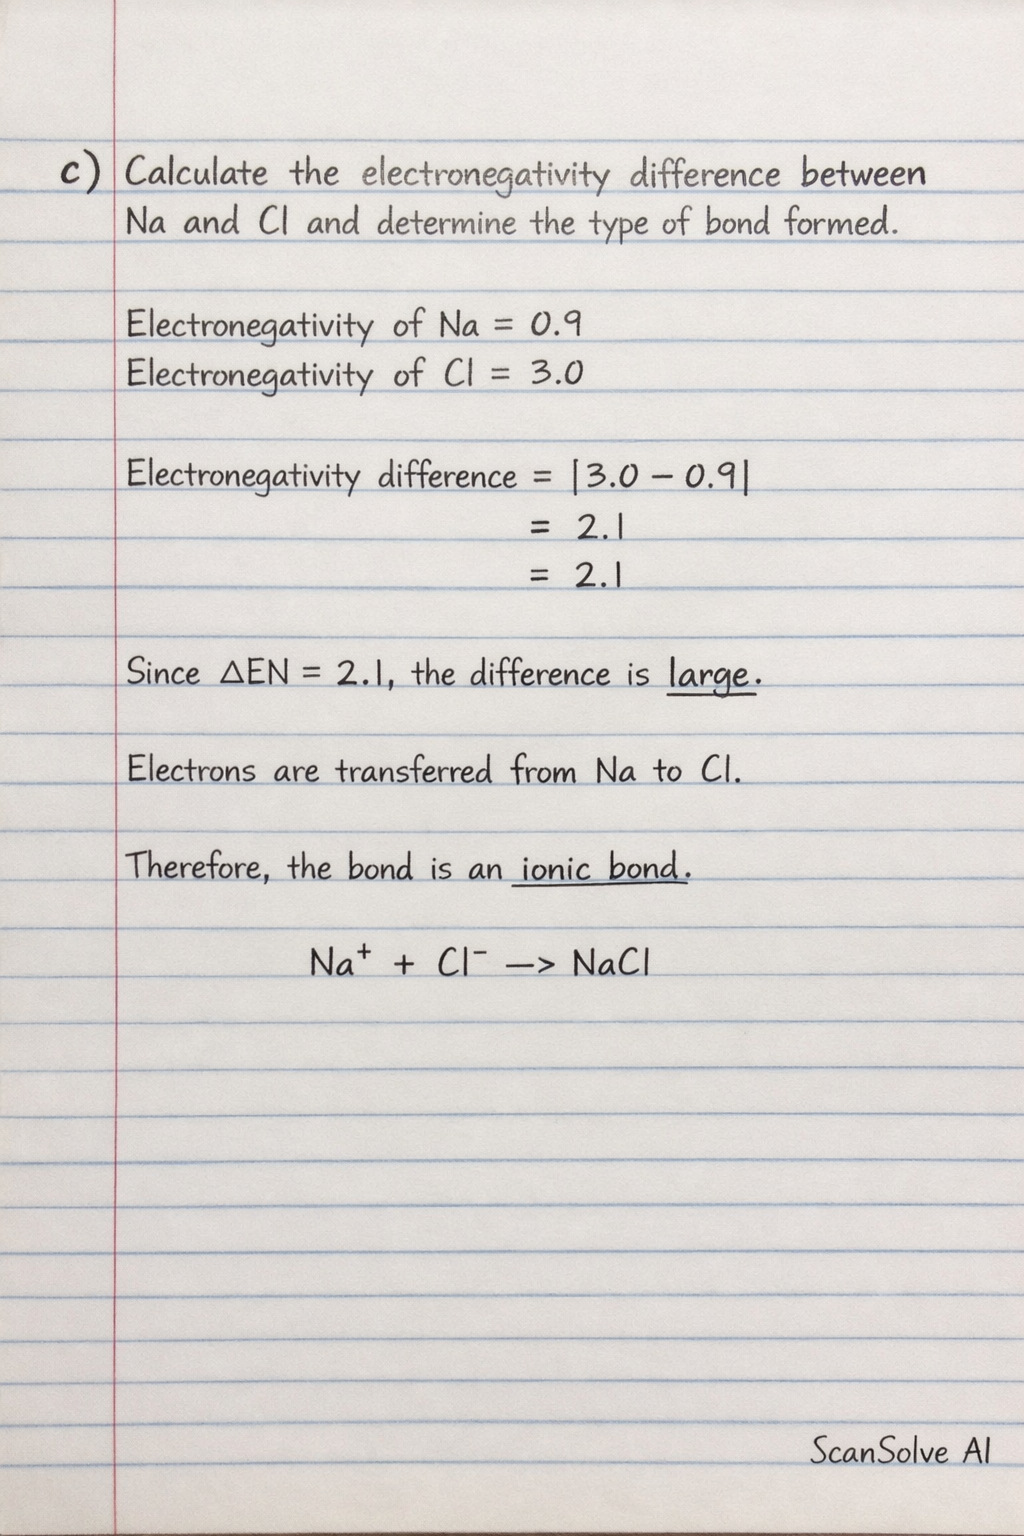 c) Calculate the electronegativity difference between
Na and Cl and determine the type of bond formed.
Electronegativity of Na = 0.9
Electronegativity of Cl = 3.0
Electronegativity difference = |3.0 − 0.9|
= 2.1
= 2.1
Since ΔEN = 2.1, the difference is large.
Electrons are transferred from Na to Cl.
Therefore, the bond is an ionic bond.
Na⁺ + Cl⁻ —> NaCl
ScanSolve AI